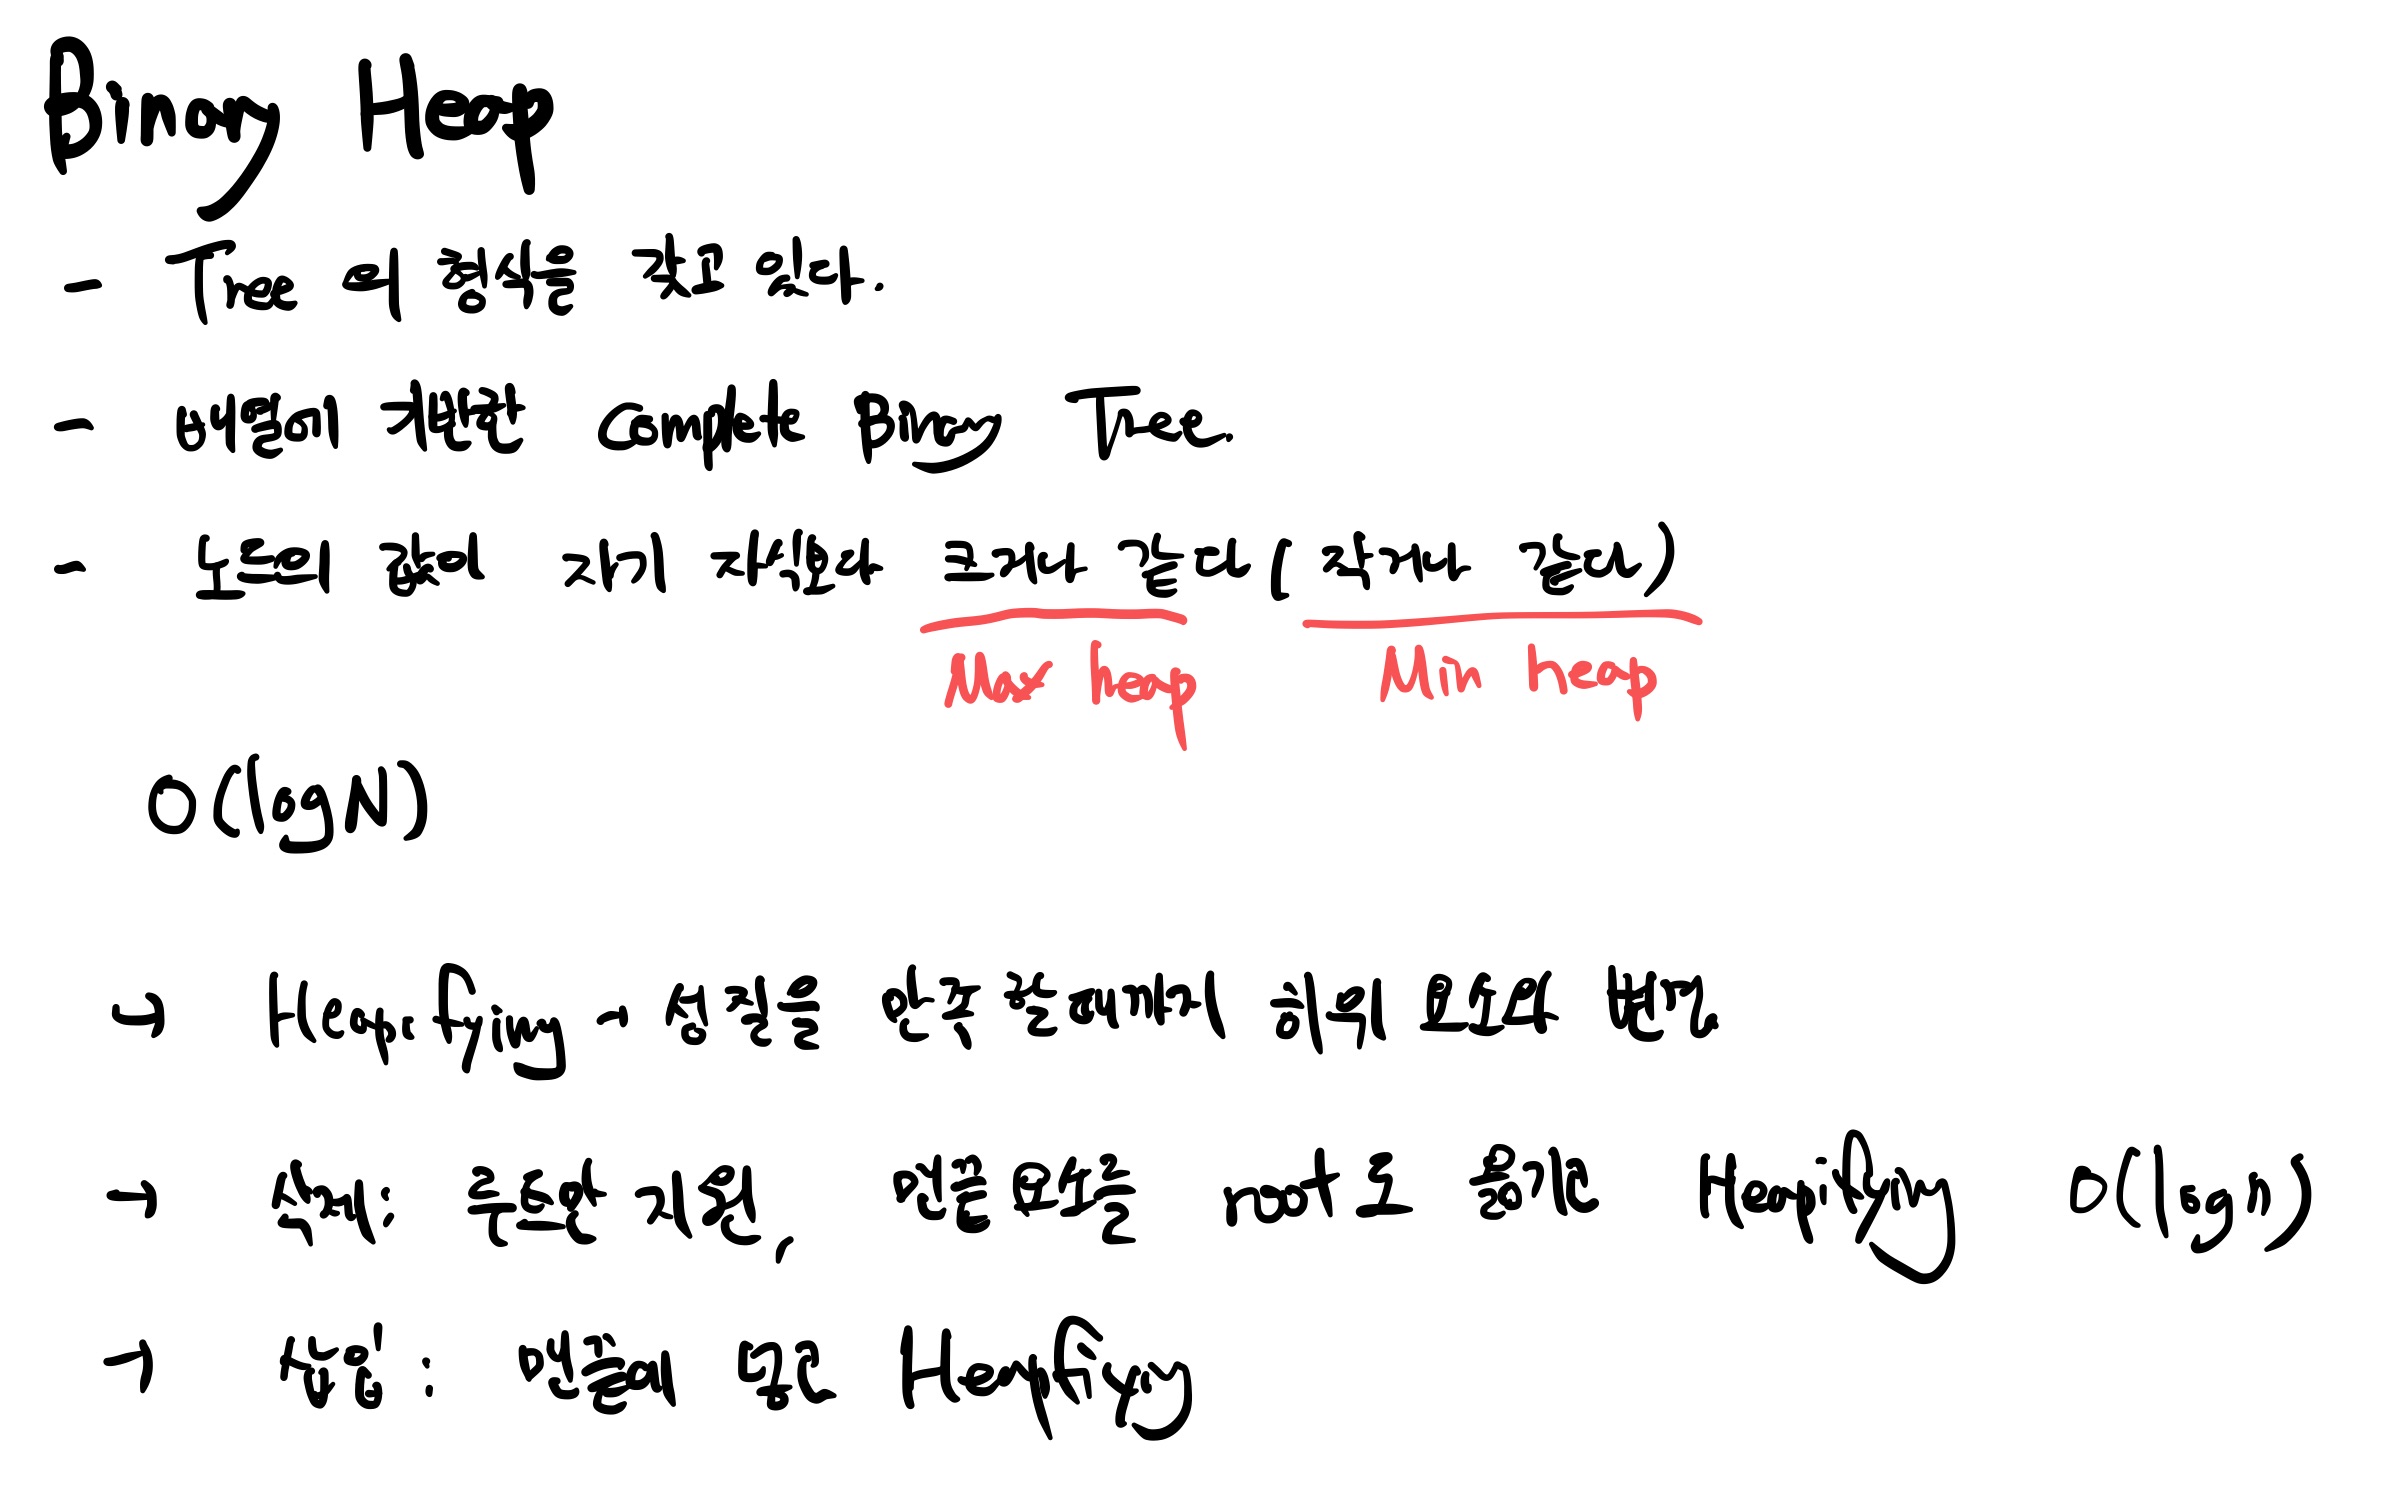 Binary Heap
- Tree의 형식을 갖고 있다.
- 배열에 기반한 Complete Binary Tree.
- 노드의 값이 자기 자식보다 크거나 같다 (작거나 같다)
Max heap Min heap
O(logN)
→ Heapifying - 성질을 만족
→ 삭제: 루트를 지우고, 마지막 요소를 root로 옮기고 Heapifying O(logn)
→ 삽입 : 맨끝에 넣고 Heapifying